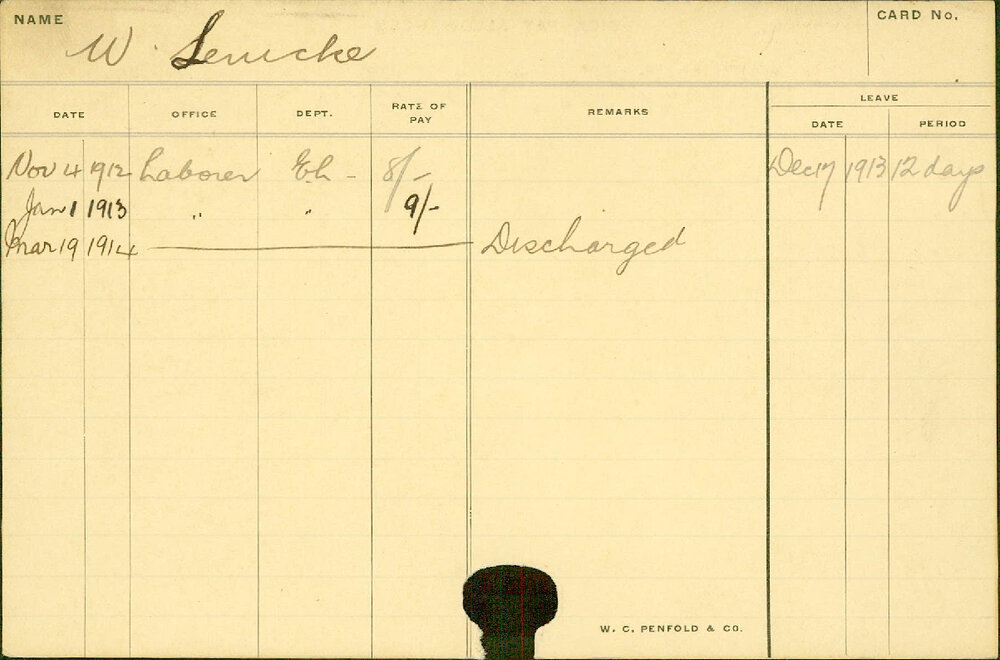 NAME
W. Lemcke
CARD No.
DATE OFFICE DEPT. RATE OF PAY REMARKS LEAVE
DATE PERIOD
Nov 4 1912 Laborer E.L. 8/- Dec 17 1913 12 days
Jan 1 1913 " " 9/-
Mar 19 1914 Discharged
W. C. PENFOLD & CO.